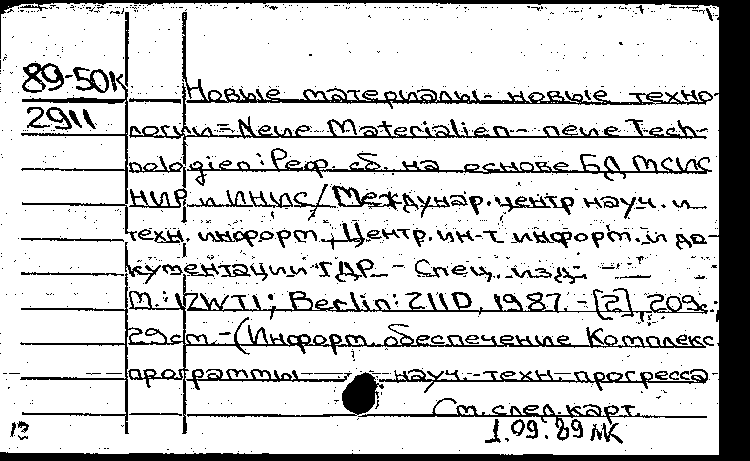 89-50К
2911
Новые материалы - новые техно-
логии = Neue Materialien - neue Tech-
nologien: Реф. сб. на основе БД МСИС
НИР и ИНИС / Междунар. центр науч. и
техн. информ., Центр. ин-т информ. и до-
кументации ГДР. - Спец. изд. -
М.: IZWTI; Berlin: ZIID, 1987. - [2], 209с.;
29см. - (Информ. обеспечение Комплекс.
программы науч.-техн. прогресса
См. след. карт.
12
1.09.89 МК